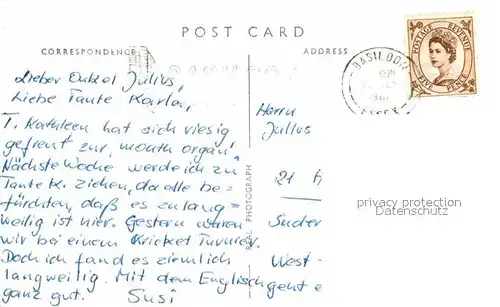 POST CARD
CORRESPONDENCE
ADDRESS
Lieber Onkel Julius,
Liebe Tante Karla,
T. Kathleen hat sich riesig
gefreut zur "mouth organ"
Nächste Woche werde ich zu
Tante K. ziehen, da alle be-
fürchten, daß es zu lang-
weilig ist hier. Gestern waren
wir bei einem Kricket Turnier.
Doch ich fand es ziemlich
langweilig. Mit dem Englisch geht e
ganz gut. Susi
REAL PHOTOGRAPH
Herrn
Julius
21
Suder
West-
BASILDON
ESSEX
POSTAGE REVENUE
FIVE PENCE
privacy protection
Datenschutz